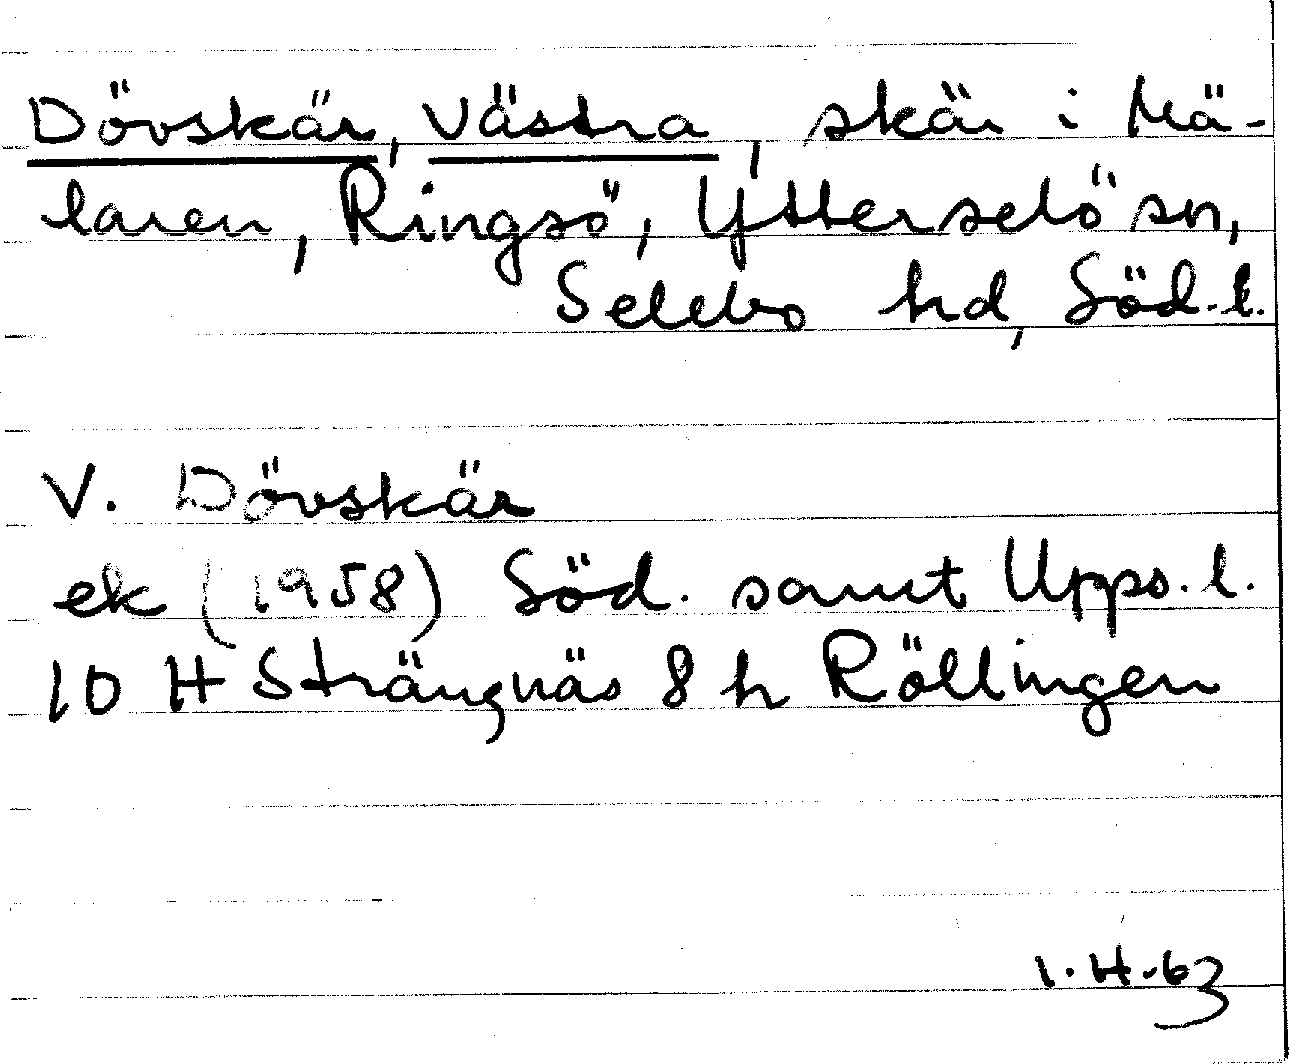 Dövskär, Västra, skär i Mä-
laren, Ringsö, Ytterselö sn,
Selebo hd, Söd. l.
V. Dövskär
ek (1958) Söd. samt Upps. l.
10 H Strängnäs 8 h Röllingen
I.H.63